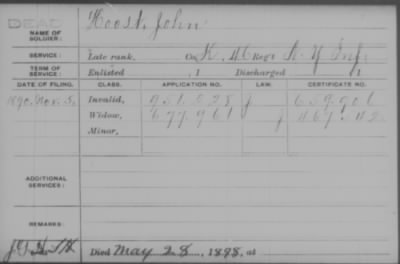 DEAD
NAME OF SOLDIER: Hoost, John
SERVICE: Late rank, Co. K, 46 Reg't N.Y. Inf.
TERM OF SERVICE: Enlisted , 1 Discharged , 1
DATE OF FILING. CLASS. APPLICATION NO. LAW. CERTIFICATE NO.
1890. Nov. 5, Invalid, 951.528 J 659.906
Widow, 677.961 J 467.42
Minor,
ADDITIONAL SERVICES:
REMARKS:
Died May 28, 1898, at